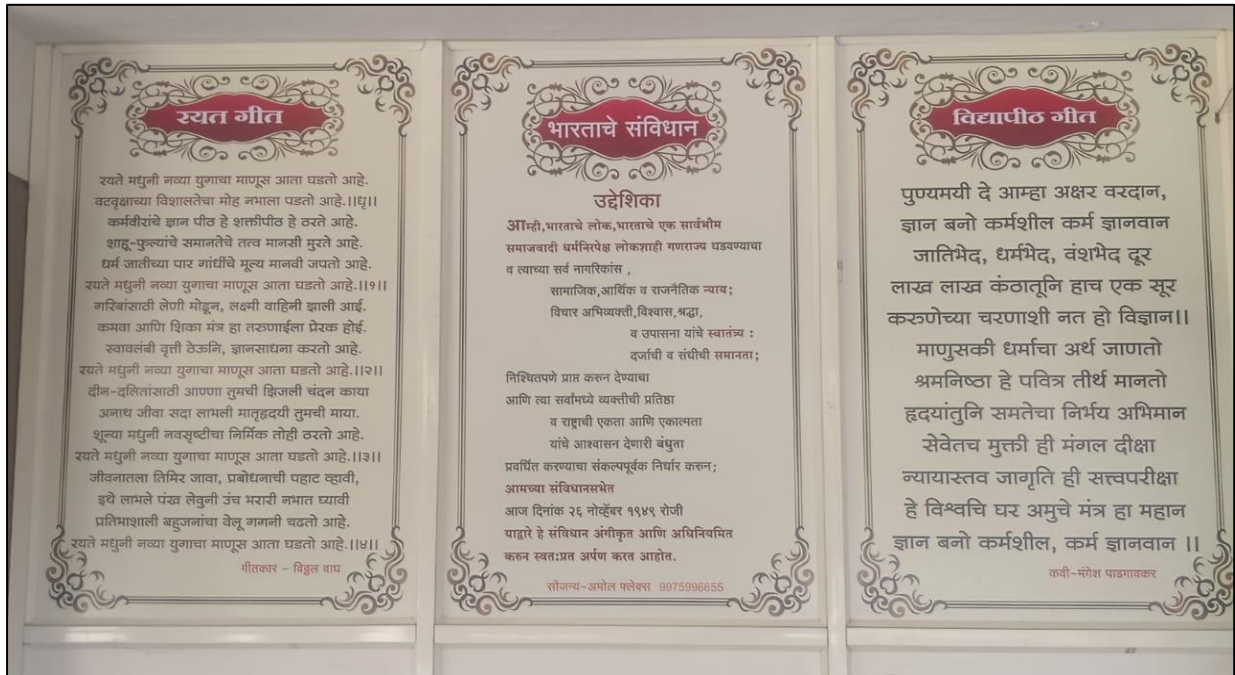 रयत गीत
रयते मधुनी नव्या युगाचा माणूस आता घडतो आहे.
वटवृक्षाच्या विशालतेचा मोह नभाला पडतो आहे.।।धृ।।
कर्मवीरांचे ज्ञान पीठ हे शक्तीपीठ हे ठरते आहे.
शाहू-फुल्यांचे समानतेचे तत्व मानसी मुरते आहे.
धर्म जातीच्या पार गांधींचे मूल्य मानवी जपतो आहे.
रयते मधुनी नव्या युगाचा माणूस आता घडतो आहे.।।१।।
गरिबांसाठी लेणी मोडून, लक्ष्मी वाहिनी झाली आई.
कमवा आणि शिका मंत्र हा तरुणाईला प्रेरक होई.
स्वावलंबी वृत्ती ठेऊनि, ज्ञानसाधना करतो आहे.
रयते मधुनी नव्या युगाचा माणूस आता घडतो आहे.।।२।।
दीन-दलितांसाठी आण्णा तुमची झिजली चंदन काया
अनाथ जीवा सदा लाभली मातृहृदयी तुमची माया.
शून्या मधुनी नवसृष्टीचा निर्मिक तोही ठरतो आहे.
रयते मधुनी नव्या युगाचा माणूस आता घडतो आहे.।।३।।
जीवनातला तिमिर जावा, प्रबोधनाची पहाट व्हावी,
इथे लाभले पंख लेवुनी उंच भरारी नभात घ्यावी
प्रतिभाशाली बहुजनांचा वेलू गगनी चढतो आहे.
रयते मधुनी नव्या युगाचा माणूस आता घडतो आहे.।।४।।
गीतकार - विठ्ठल वाघ
भारताचे संविधान
उद्देशिका
आम्ही,भारताचे लोक,भारताचे एक सार्वभौम
समाजवादी धर्मनिरपेक्ष लोकशाही गणराज्य घडवण्याचा
व त्याच्या सर्व नागरिकांस ,
सामाजिक,आर्थिक व राजनैतिक न्याय;
विचार अभिव्यक्ती,विश्वास,श्रद्धा,
व उपासना यांचे स्वातंत्र्य :
दर्जाची व संधीची समानता;
निश्चितपणे प्राप्त करुन देण्याचा
आणि त्या सर्वांमध्ये व्यक्तीची प्रतिष्ठा
व राष्ट्राची एकता आणि एकात्मता
यांचे आश्वासन देणारी बंधुता
प्रवर्धित करण्याचा संकल्पपूर्वक निर्धार करुन;
आमच्या संविधानसभेत
आज दिनांक २६ नोव्हेंबर १९४९ रोजी
याद्वारे हे संविधान अंगीकृत आणि अधिनियमित
करुन स्वत:प्रत अर्पण करत आहोत.
सौजन्य-अमोल फ्लेक्स 9975996655
विद्यापीठ गीत
पुण्यमयी दे आम्हा अक्षर वरदान,
ज्ञान बनो कर्मशील कर्म ज्ञानवान
जातिभेद, धर्मभेद, वंशभेद दूर
लाख लाख कंठातूनि हाच एक सूर
करुणेच्या चरणाशी नत हो विज्ञान।।
माणुसकी धर्माचा अर्थ जाणतो
श्रमनिष्ठा हे पवित्र तीर्थ मानतो
हृदयांतुनि समतेचा निर्भय अभिमान
सेवेतच मुक्ती ही मंगल दीक्षा
न्यायास्तव जागृति ही सत्त्वपरीक्षा
हे विश्वचि घर अमुचे मंत्र हा महान
ज्ञान बनो कर्मशील, कर्म ज्ञानवान ।।
कवी-मंगेश पाडगावकर